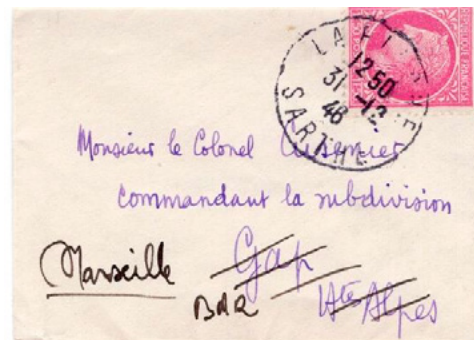 LA FLECHE
12 50
31 -12
46
SARTHE
Monsieur le Colonel
commandant la subdivision
Marseille Gap
BdR Htes Alpes